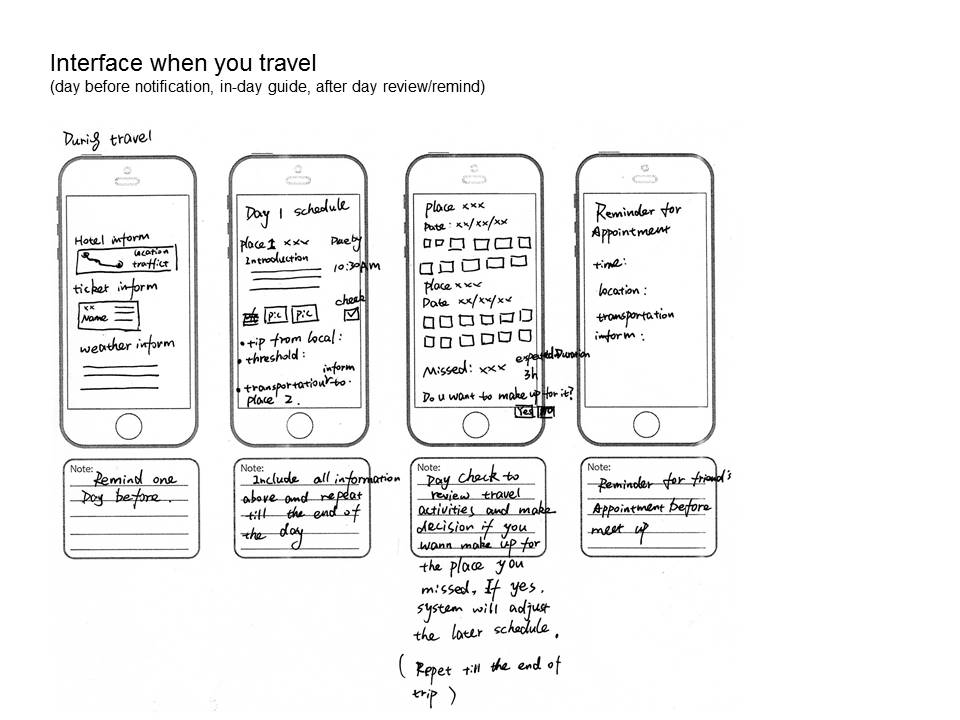 Interface when you travel
(day before notification, in-day guide, after day review/remind)
During travel
Hotel inform
location
traffict
ticket inform
xx
Name
weather inform
Note:
Remind one
Day before.
Day 1 schedule
Place 1 xxx Due by
Introduction
10:30AM
check
pic pic
• tip from local:
• threshold:
inform
• transportation to
place 2.
Note:
Include all information
above and repeat
till the end of
the day
Place xxx
Date: xx/xx/xx
Place xxx
Date xx/xx/xx
expected Duration
Missed: xxx 3h
Do u want to make up for it?
Yes NO
Note:
Day check to
review travel
activities and make
decision if you
wann make up for
the place you
missed, If yes,
system will adjust
the later schedule.
( Repet till the end of
trip )
Reminder for
Appointment
time:
location:
transportation
inform:
Note:
Reminder for friend's
Appointment before
meet up